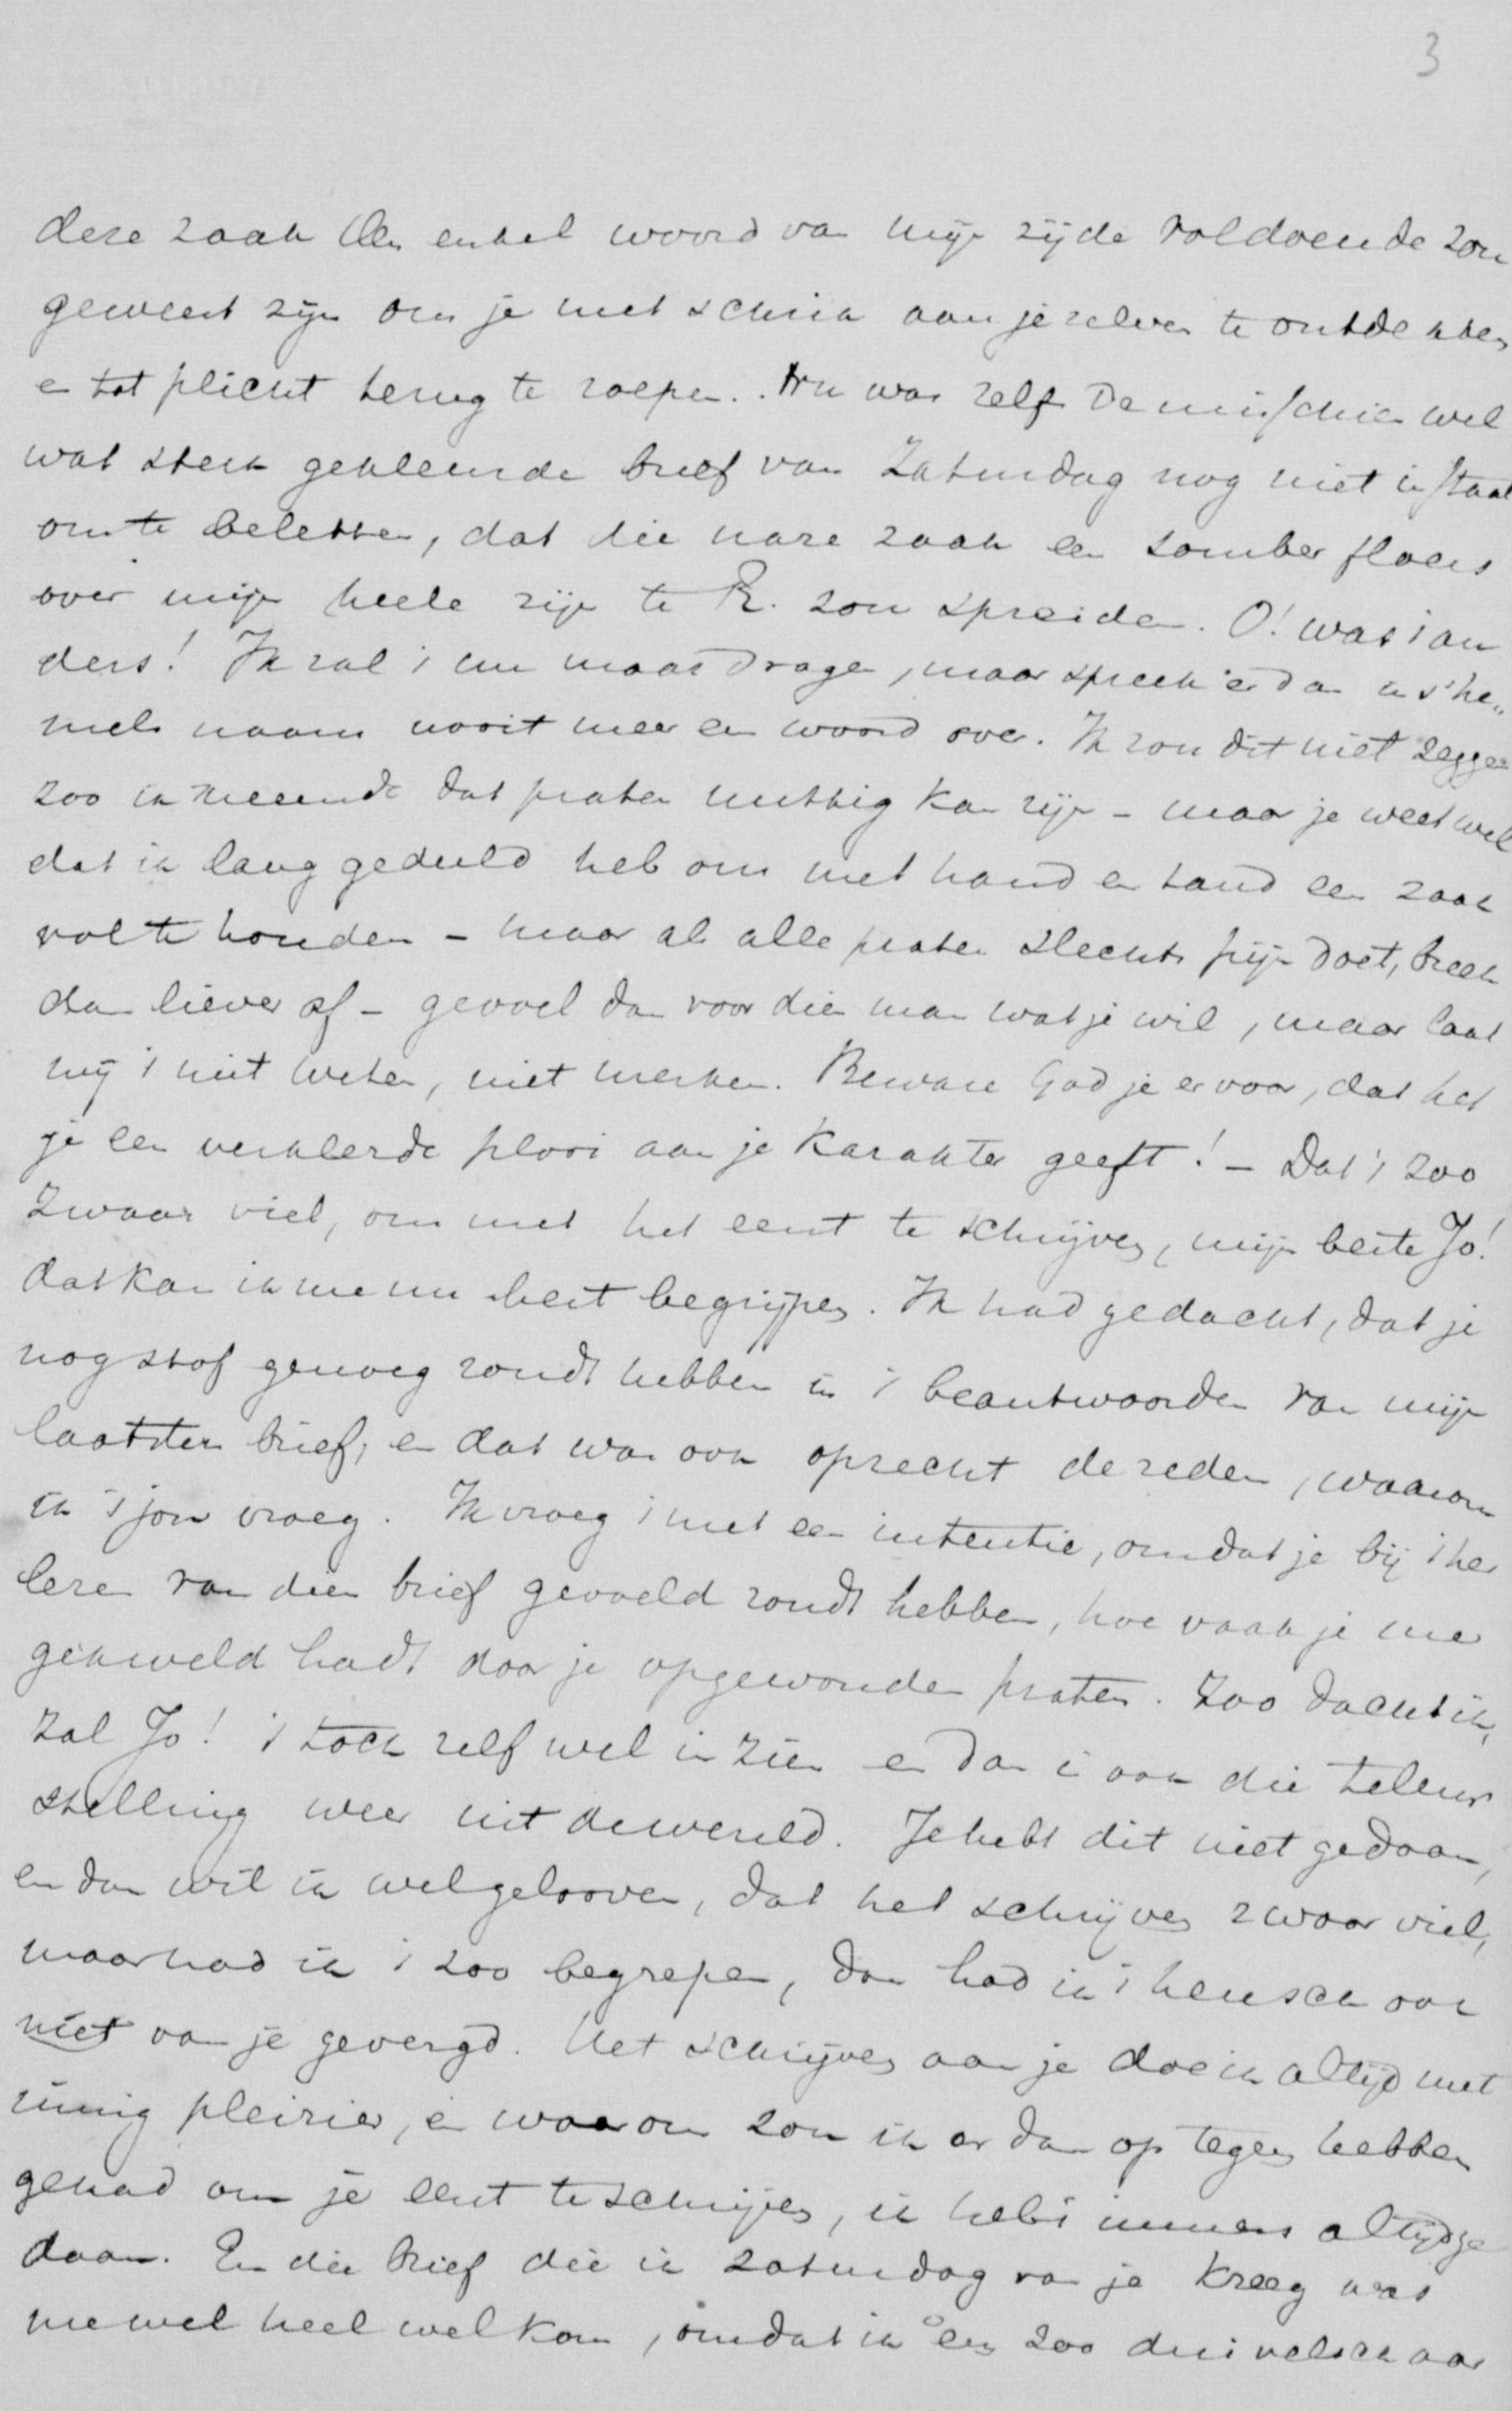 3
deze zaak één enkel woord van mijn zijde voldoende zou
geweest zijn om je met schrik aan jezelven te ontdekken
en tot plicht terug te roepen. Nu was zelfs de misschien wel
wat sterk gekleurde brief van Zaturdag nog niet in staat
om te beletten, dat die nare zaak een somber floers
over mijn heele zijn te R. zou spreiden. O! was 't an
ders! Ik zal 't nu maar dragen, maar spreek er dan in 's he„
mels naam nooit meer een woord over. Ik zou dit niet zeggen
zoo ik meende dat praten nuttig kan zijn – maar je weet wel
dat ik lang geduld heb om met hand en tand een zaak
vol te houden – maar als alle praten slechts pijn doet, breek
dan liever af – gevoel dan voor dien man wat je wil, maar laat
mij 't niet weten, niet merken. Beware God je ervoor, dat het
je een verkleerde plooi aan je karakter geeft! – Dat 't zoo
zwaar viel, om met het eerst te schrijven, mijn beste Jo!
dat kan ik me nu best begrijpen. Ik had gedacht, dat je
nog stof genoeg zoudt hebben in 't beantwoorden van mijn
laatsten brief, en dat was ook oprecht de reden, waarom
ik 't jou vroeg. Ik vroeg 't met een intentie, omdat je bij 't her
lezen van dien brief gevoeld zoudt hebben, hoe vaak je me
gekweld hadt door je opgewonden praten. Zoo dacht ik,
zal Jo! 't toch zelf wel in zien en dan is ook die teleur
stelling weer uit de wereld. Je hebt dit niet gedaan,
en dan wil ik wel gelooven, dat het schrijven zwaar viel,
maar had ik 't zoo begrepen, dan had ik 't heusch ook
niet van je gevergd. Het schrijven aan je doe ik altijd met
innig pleizier, en waarom zou ik er dan op tegen hebben
gehad om je eerst te schrijven, ik heb 't immers altijd ge
daan. En die brief die ik Zaturdag van je kreeg was
me wel heel welkom, omdat ik een zoo duivelsch aar